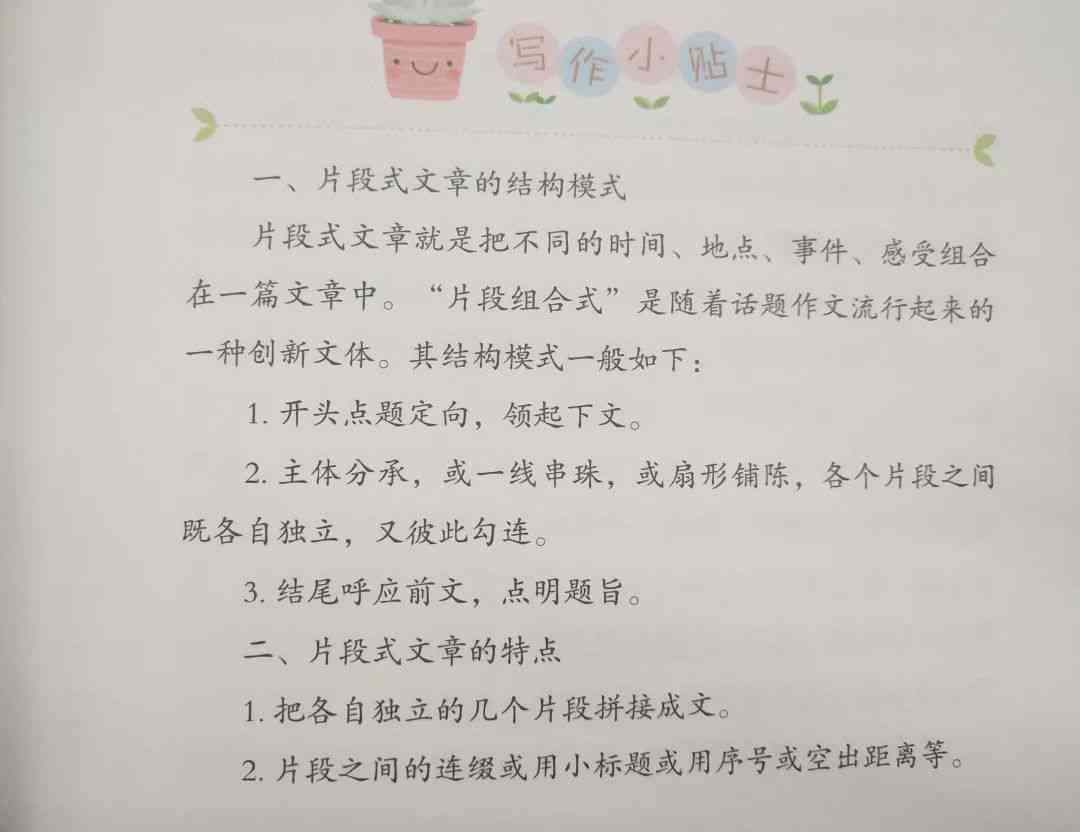 写作小贴士
一、片段式文章的结构模式
片段式文章就是把不同的时间、地点、事件、感受组合
在一篇文章中。“片段组合式”是随着话题作文流行起来的
一种创新文体。其结构模式一般如下：
1. 开头点题定向，领起下文。
2. 主体分承，或一线串珠，或扇形铺陈，各个片段之间
既各自独立，又彼此勾连。
3. 结尾呼应前文，点明题旨。
二、片段式文章的特点
1. 把各自独立的几个片段拼接成文。
2. 片段之间的连缀或用小标题或用序号或空出距离等。